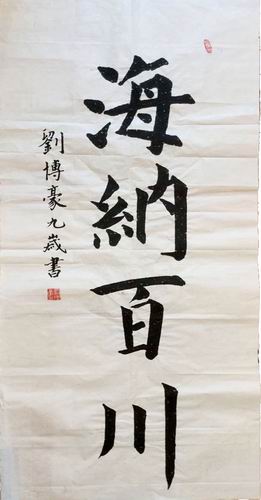 海納百川
劉博豪九歲書